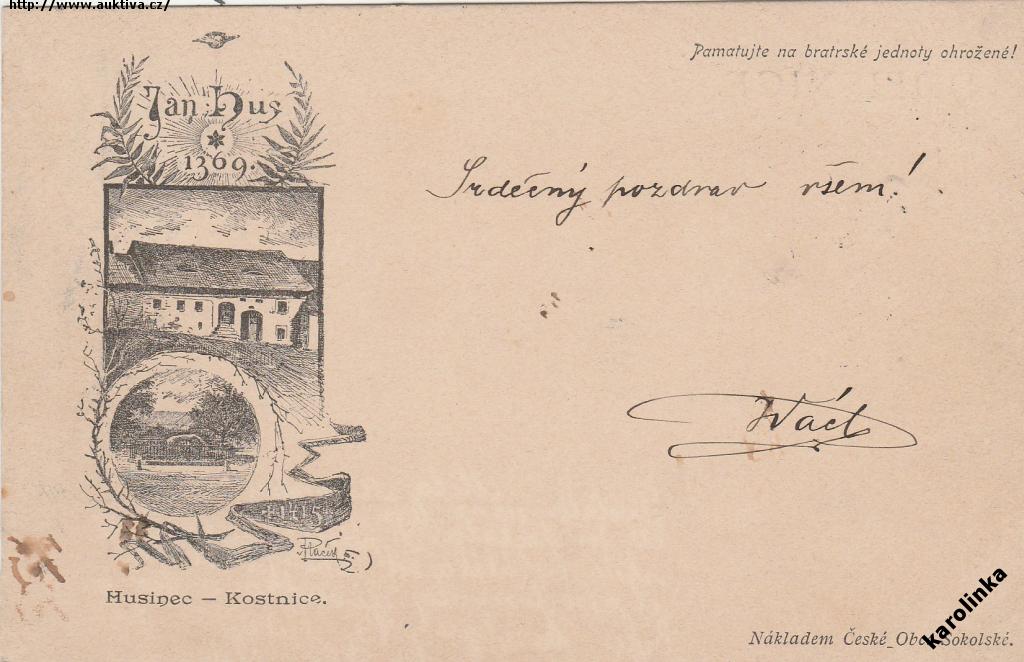 http://www.auktiva.cz/
Pamatujte na bratrské jednoty ohrožené!
Jan Hus
1369.
Srdečný pozdrav všem!
Václ
†1415
Husinec – Kostnice.
Nákladem České Obce Sokolské.
karolinka